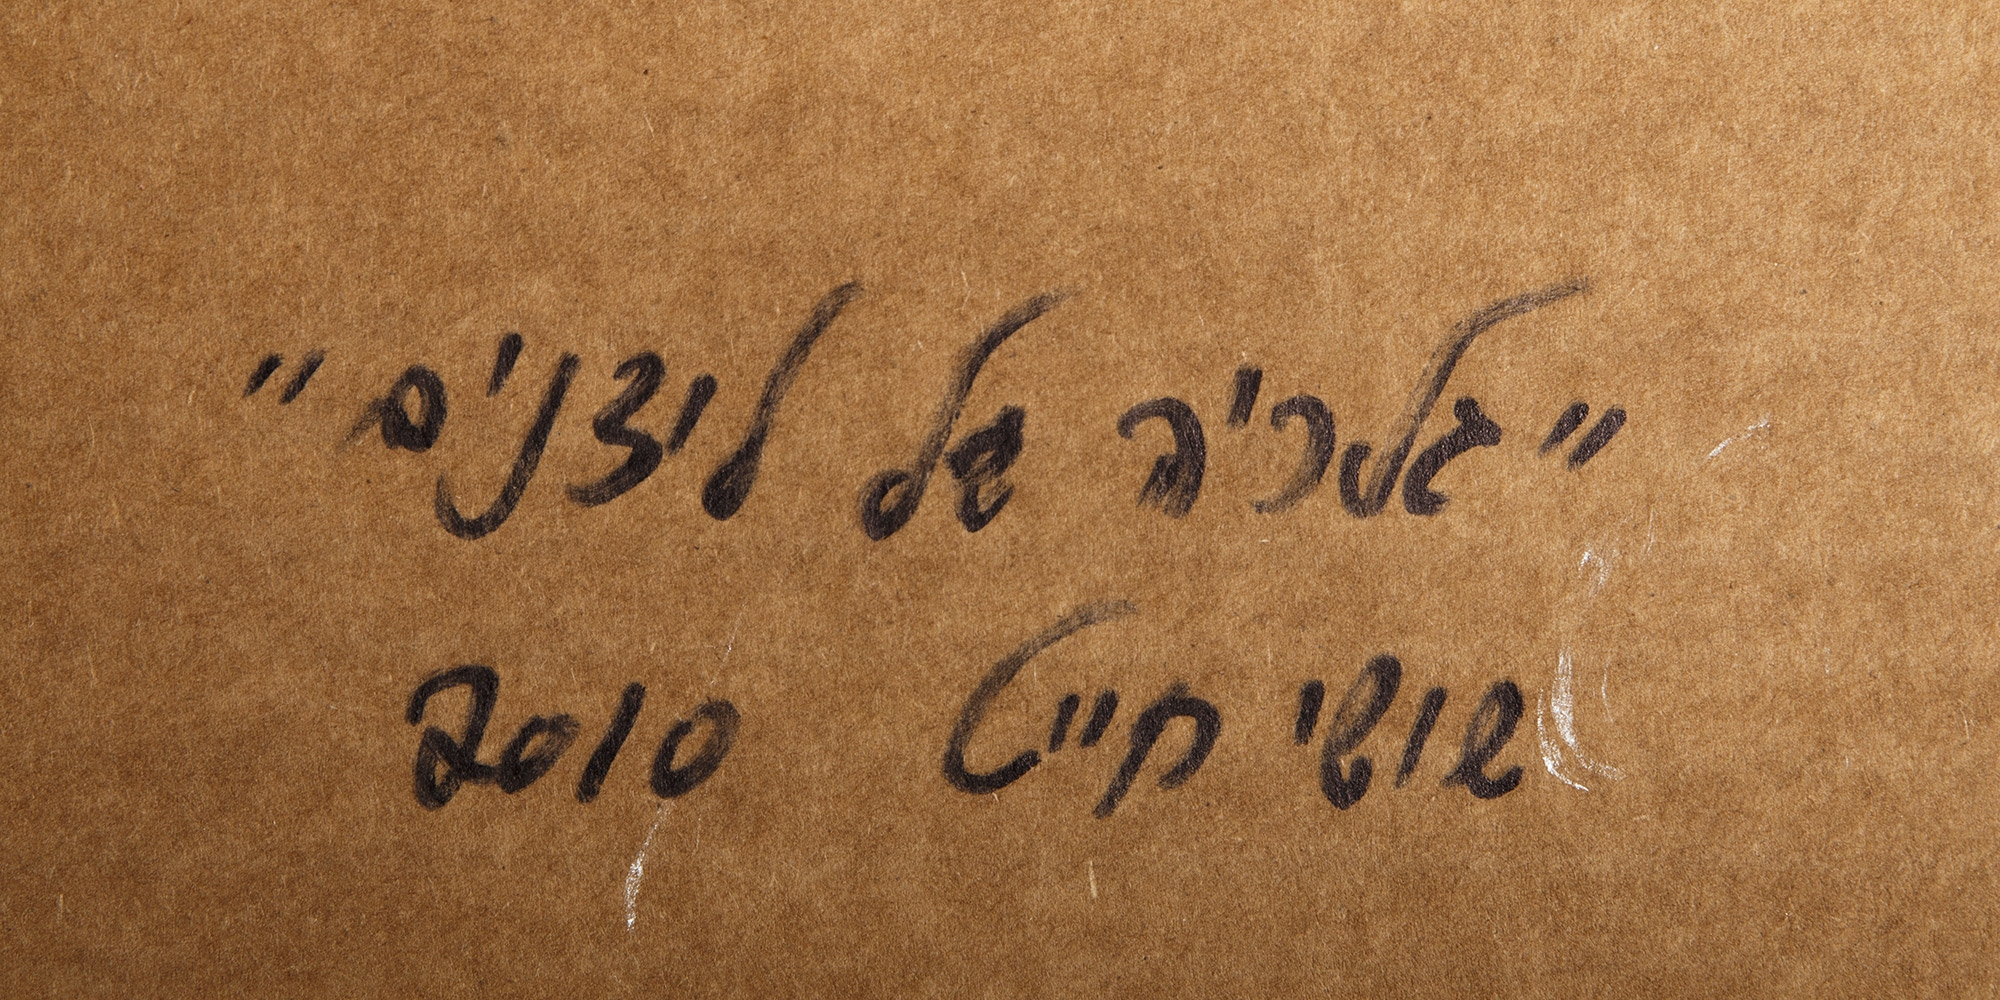 "גלריה של ליצנים"
שושי חייט 2010